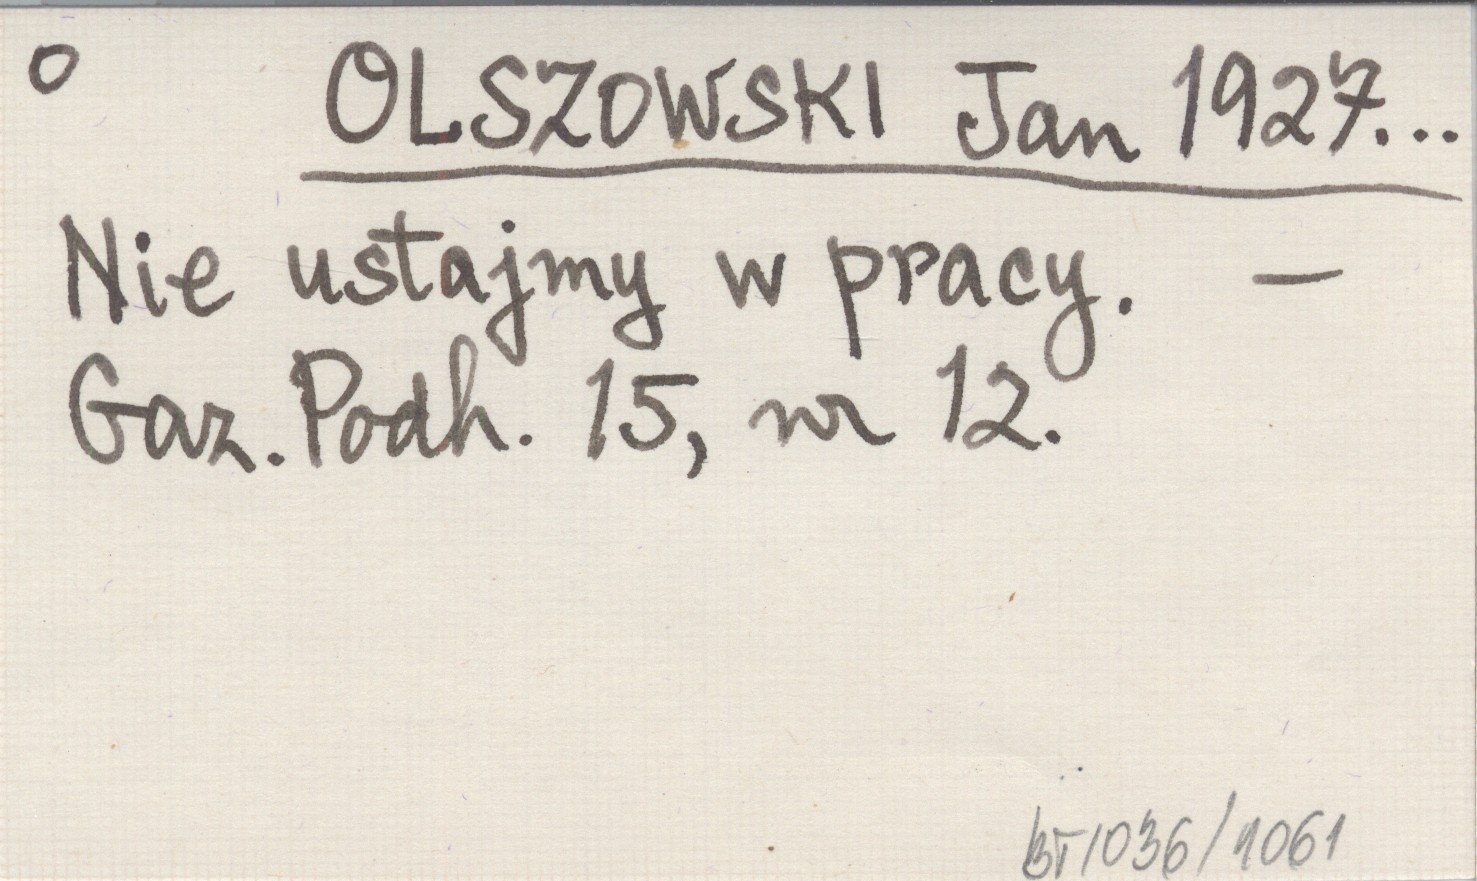 O OLSZOWSKI Jan 1927...
Nie ustajmy w pracy. —
Gaz. Podh. 15, nr 12.
BT/036/1061